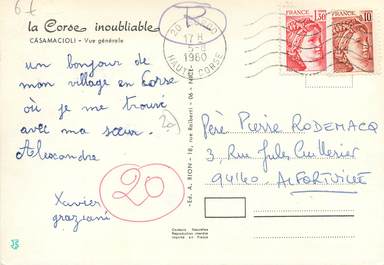 6 f
la Corse inoubliable
CASAMACIOLI - Vue générale
un bonjour de
mon village en Corse
où je me trouve
avec ma sœur.
Alexandre
Xavier
graziani
20
20
R
17 H
5-8
1980
HAUTE CORSE
FRANCE
1,30
FRANCE
0,10
Ed. A. RION - 18, rue Raiberti - 06 - NICE
Père Pierre RODEMACQ
3, Rue Jules Cuillerier
94140 ALFORTVILLE
Couleurs Naturelles
Reproduction interdite
Imprimé en France